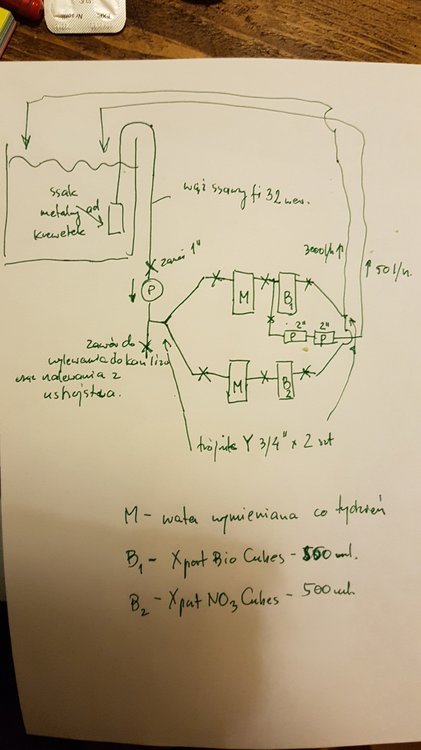 ssak
metalowy od
krewetek
wąż ssawny fi 32 wew.
zawór 1"
P
zawór do
wylewania do kanaliz.
oraz nalewania z
ustrojstwa.
M
B1
3000 l/h
50 l/h.
2" 2"
P P
M
B2
trójnik Y 3/4" x 2 szt
M - wata wymieniana co tydzień
B1 - Xport Bio Cubes - 500 ml.
B2 - Xport NO3 Cubes - 500 ml.